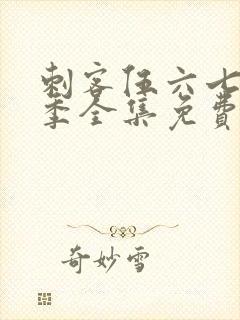 刺客伍六七
季全集免費
奇妙雪